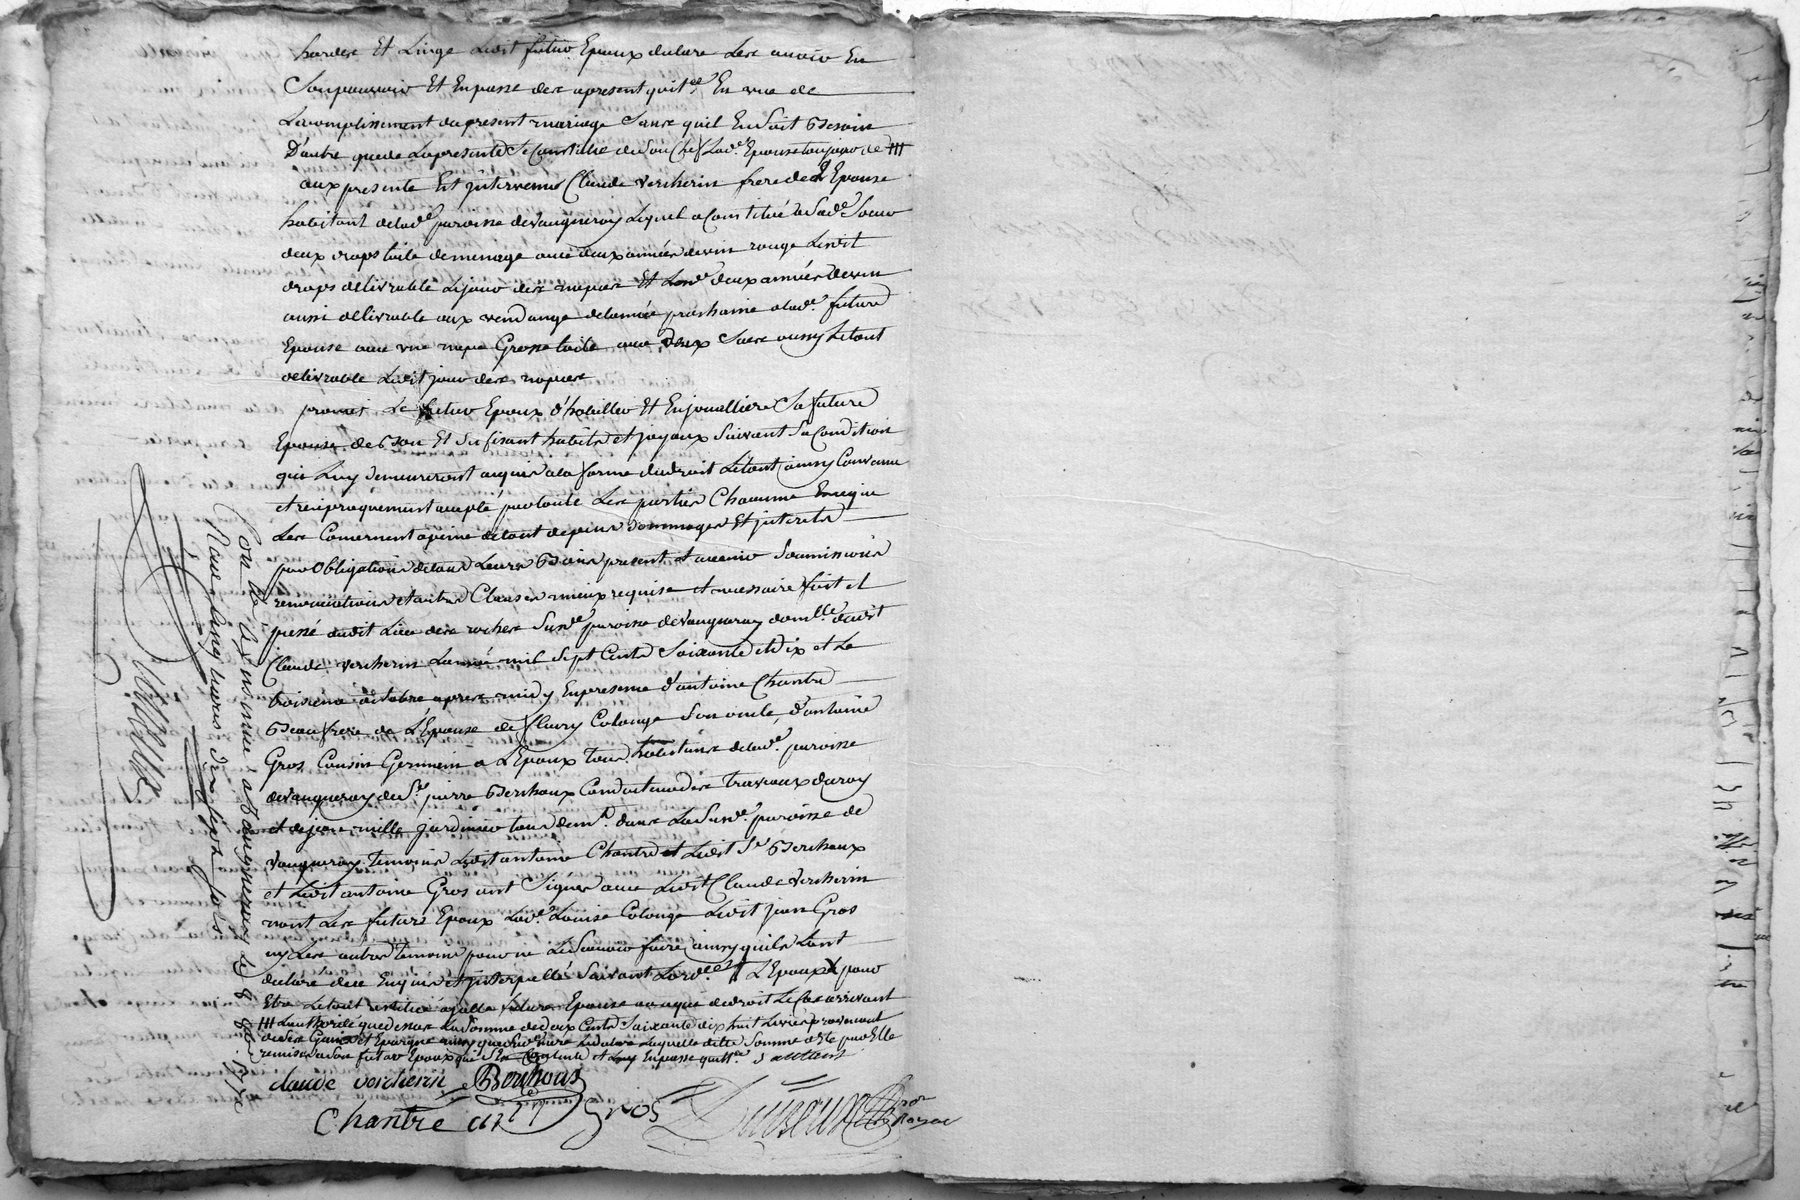 hardes Et Linge Ledit futur Epoux declare Les avoir En
Sonpouvoir Et Enpasse des apresent quitce En vue de
Lacomplissement dupresent mariage Sans quil Ensoit Besoin
D'autre quede Lapresente Se Constitue deSon Chef Lade Epouse toujours de
aux presente Est jntervenu Claude Vercherin frere deL'Epouse
habitant delade paroisse deVaugneray Lequel aConstitué aSade Soeur
deux draps toile demenage avec deux années devin rouge Lesdit
draps délivrable Lejour des nopces Et Lesd. deux années devin
aussi délivrable aux vendange delannée prochaine alade future
Epouse avec une nape Grosse toile avec deux Sacs aussy Letout
délivrable Ledit jour des nopces
promet Le futur Epoux d'habiller Et Enjouallier Sa future
Epouse de Bon Et Sufisant habits et joyaux Suivant Sa Condition
qui Luy demeureront acquis ala forme dudroit Letout ainsy Convenu
et reciproquement accepté partoute Les parties Chacune Ence qui
Les Concernent apeine detout depens dommages Et jnterets
par Obligations detous Leurs Biens present et avenir Soumissions
renonciations et autres Clauses mieux requise et necessaire fait et
passé audit Lieu des roches Susde paroisse deVaugneray domlle dudit
Claude Vercherin Lannée mil Sept Cents Soixante et Dix et Le
troisieme octobre apres midy Enpresence d'antoine Chantre
Beaufrere de L'Epouse de fleury Colonge Son oncle, d'antoine
Gros Cousin Germein a L'Epoux tous habitans delade paroisse
deVaugneray deSr pierre Berthoux Conducteurdes Travaux duroy
et dejean mille jardinier tous demt dans La Susde paroisse de
Vaugneray temoins Ledit antoine Chantre et Ledit Sr Berthoux
et Ledit antoine Gros ont Signés avec Ledit Claude Vercherin
nont Les future Epoux Lade Louise Colonge Ledit jean Gros
ny Les autres temoins pour ne Lesavoir faire ainsy quils Lont
declaré dece Enquis et jnterpellé Suivant Lordce L'Epoux pour
Etre Letout restitué alade future Epouse ou aqui dedroit Le Cas arrivant
Lauthorité quedessus La Somme dedeux Cents Soixante dix huit Livres provenant
deses Gains et Epargne ainsy que Sade mere Ladeclaré Laquelle dite Somme aEté par Elle
remise audit futur Epoux qui S'En Contente et Luy Enpasse quittce
claude vercherin Berthoux
Chantre Gros
Controllé a Vaugneray le 8 8bre 1770
Reçu cinq livres dix sept sols